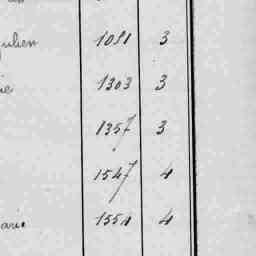 julien 1091 3
ie 1303 3
1357 3
1547 4
arie 1551 4